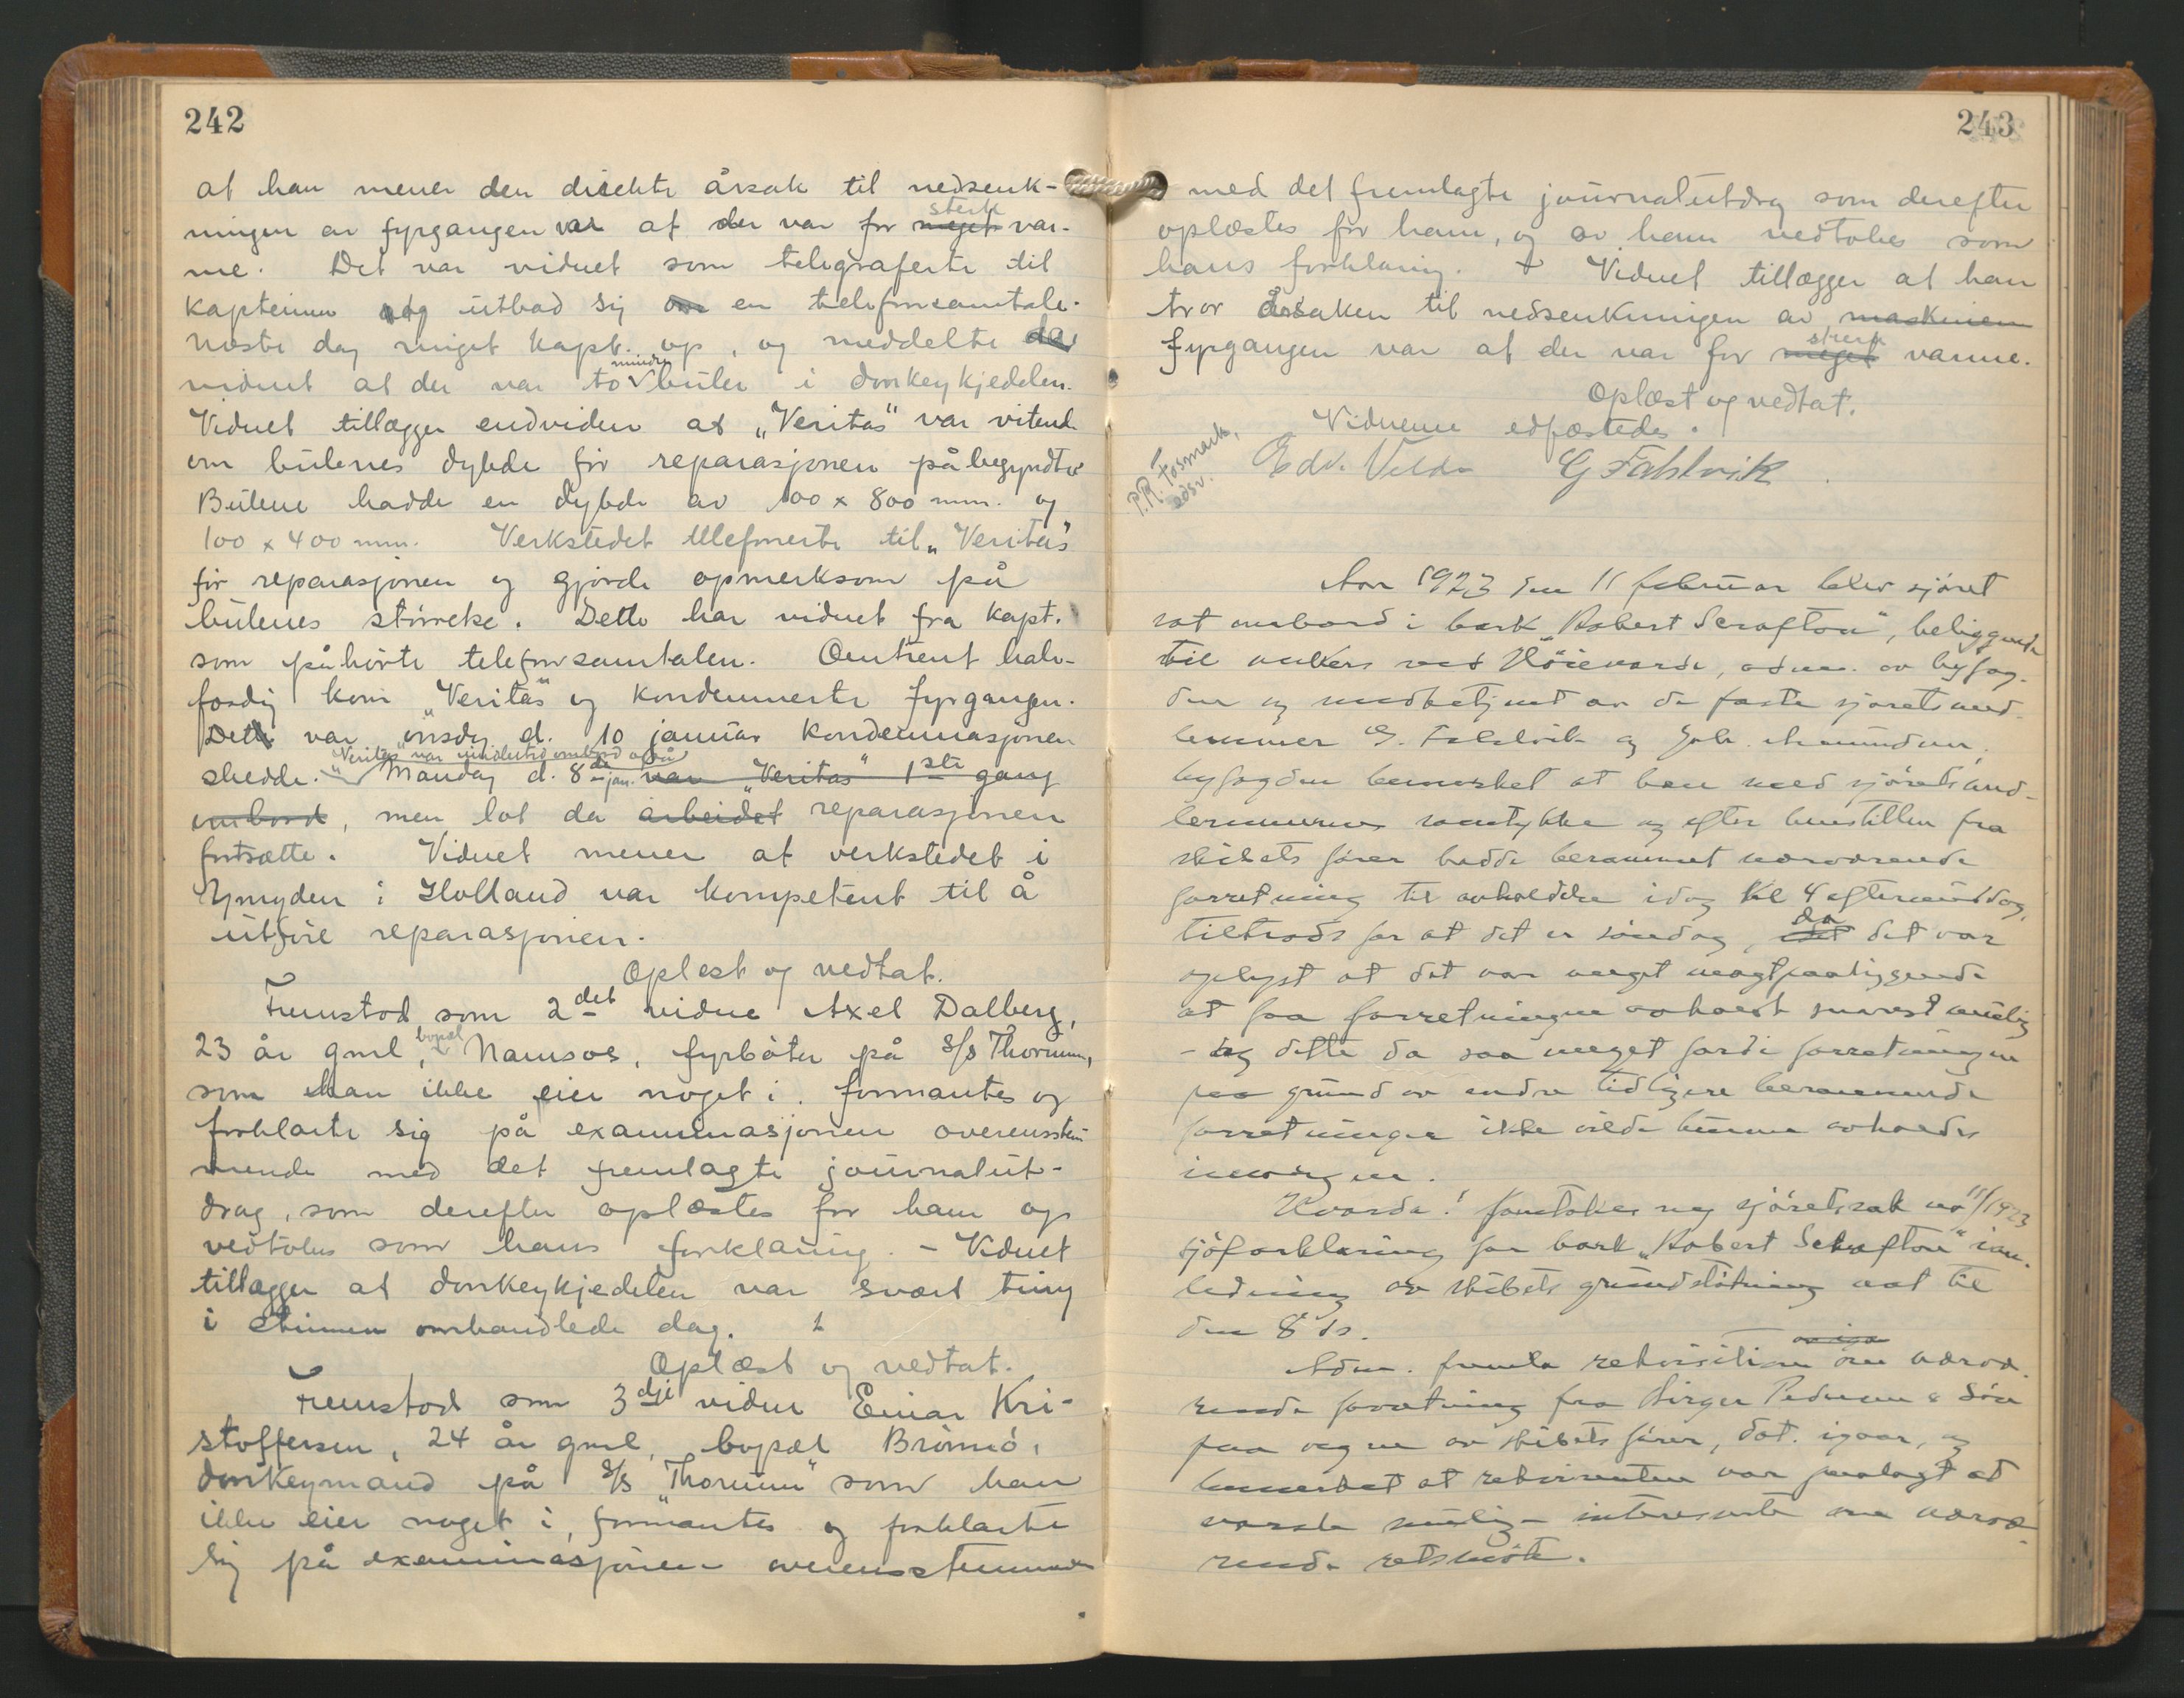 242
at han mener den direkte årsak til nedsenk-
ningen av fyrgangen var at der var for meget sterk var-
me. Det var vidnet som telegraferte til
kapteinen og utbad sig om en telefonsamtale.
Næste dag ringet kapt. op, og meddelte da
vidnet at der var to mindre buler i donkeykjedelen.
Vidnet tillægger endvidere at „Veritas" var vitende
om bulenes dybde før reparasjonen påbegyndte
Bulene hadde en dybde av 100 x 800 mm. og
100 x 400 mm. Verkstedet telefonerte til „Veritas"
før reparasjonen og gjorde opmerksom på
bulenes størrelse. Dette har vidnet fra kapt.
som påhørte telefonsamtalen. Omtrent halv-
færdig kom „Veritas" og kondemnerte fyrgangen.
Dette var onsdag d. 10 januar kondemnasjonen
skedde. „Veritas" var imidlertid ombord også
Mandag d. 8de jan. var „Veritas" 1ste gang
ombord, men lot da arbeidet reparasjonen
fortsætte. Vidnet mener at verkstedet i
Ymuyden i Holland var kompetent til å
utføre reparasjonen.
Oplest og vedtat.
Fremstod som 2det vidne Axel Dalberg,
23 år gml, bopæl Namsos, fyrbøter på s/s Thorunn,
som han ikke eier noget i. formantes og
forklarte sig på examinasjonen overensstem-
mende med det fremlagte journalut-
drag, som derefter oplæstes for ham og
vedtokes som hans forklaring. - Vidnet
tillægger at donkeykjedelen var svært tung
i omhandlede dag.
Oplæst og vedtat.
Fremstod som 3dje vidne Einar Kri-
stoffersen, 24 år gml, bopæl Brønnø,
donkeymand på s/s „Thorunn" som han
ikke eier noget i, formantes og forklarte
sig på examinasjonen overensstemmende
243
med det fremlagte journalutdrag som derefter
oplæstes for ham, og av ham vedtokes som
hans forklaring. Vidnet tillægger at han
tror årsaken til nedsenkningen av maskinen
fyrgangen var at der var for meget sterk varme.
Oplæst og vedtat.
Vidnerne edfæstedes.
P.R. Fosmark, edsv.
Edv. Velde G Fahlvik
Aar 1923 den 11 februar blev sjöret
sat ombord i bark „Robert Scrafton", beliggende
til ankers ved Höievarde, adm. av byfog-
den og medbetjent av de faste sjöretsmed-
lemmer G. Fahlvik og Joh. Amundsen.
byfogden bemerket at han med sjöretsmed-
lemmernes samtykke og efter henstillen fra
skibets förer hadde berammet nærværende
forretning til avholdelse idag kl 4 eftermiddag,
tiltrods for at det er söndag, idet da det var
oplyst at det var meget magtpaaliggende
at faa forretningen avholdt snarest mulig
- og dette da saa meget fordi forretningen
paa grund av andre tidligere berammende
forretninger ikke vilde kunne avholdes
imorgen.
Hvorda! foretokes ny sjöretssak no 11/1923
sjöforklaring for bark „Robert Scrafton" i an-
ledning av skibets grundstötning nat til
den 8 ds.
Adm. fremla rekvisition om nærvæ-
rende forretning fra Birger Pedersen & Sön
paa vegne av skibets förer, dat. igaar, og
bemerket at rekvirenten var paalagt at
varsle mulig interesserte om nærvæ-
rende retsmöte.